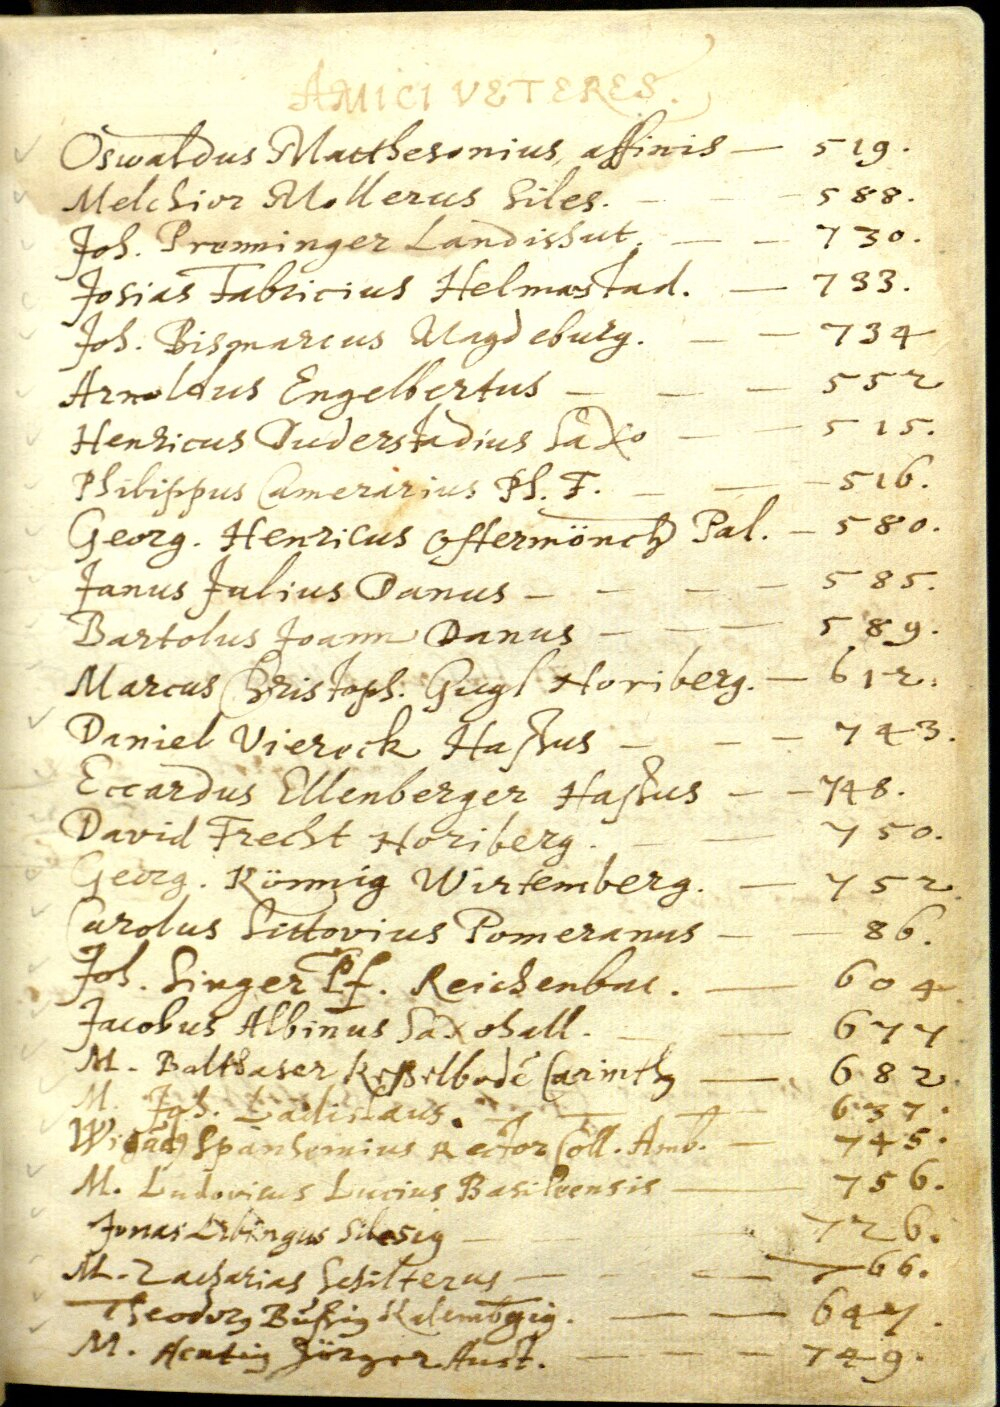 AMICI VETERES.
Oswaldus Matthesonius affinis — 519.
Melchior Mollerus Siles. — — — 588.
Joh. Prenninger Landishut. — — 730.
Josias Fabricius Helmstad. — 733.
Joh. Bismarcus Magdeburg. — — 734
Arnoldus Engelbertus — — — 552
Henricus Duderstadius Saxo — — 515.
Philippus Camerarius Ph. F. — — — 516.
Georg. Henricus Ostermönch Pal. — 580.
Janus Julius Danus — — — — 585.
Bartolus Joann Danus — — — 589.
Marcus Christoph. Gugl Noriberg. — 612.
Daniel Vierock Hassus — — — 743.
Eccardus Ellenberger Hassus — — 748.
David Frecht Noriberg. — — 750.
Georg. Könnig Wirtemberg. — 752.
Carolus Sittovius Pomeranus — — 86.
Joh. Singer Pf. Reichenbac. — 604
Jacobus Albinus Saxohall. — — 677
M. Balthaser Carinth9 — 682.
M. Joh. Ladislaus. — — — 637.
Spanhemius Rector Coll. Amb. — 745.
M. Ludovicus Lucius Basileensis — 756.
Jonas Silesig — — 726.
M. Zacharias Schilterus — — — 766.
Theodor9 — — 647.
M. Jörger Aust. — — — 749.